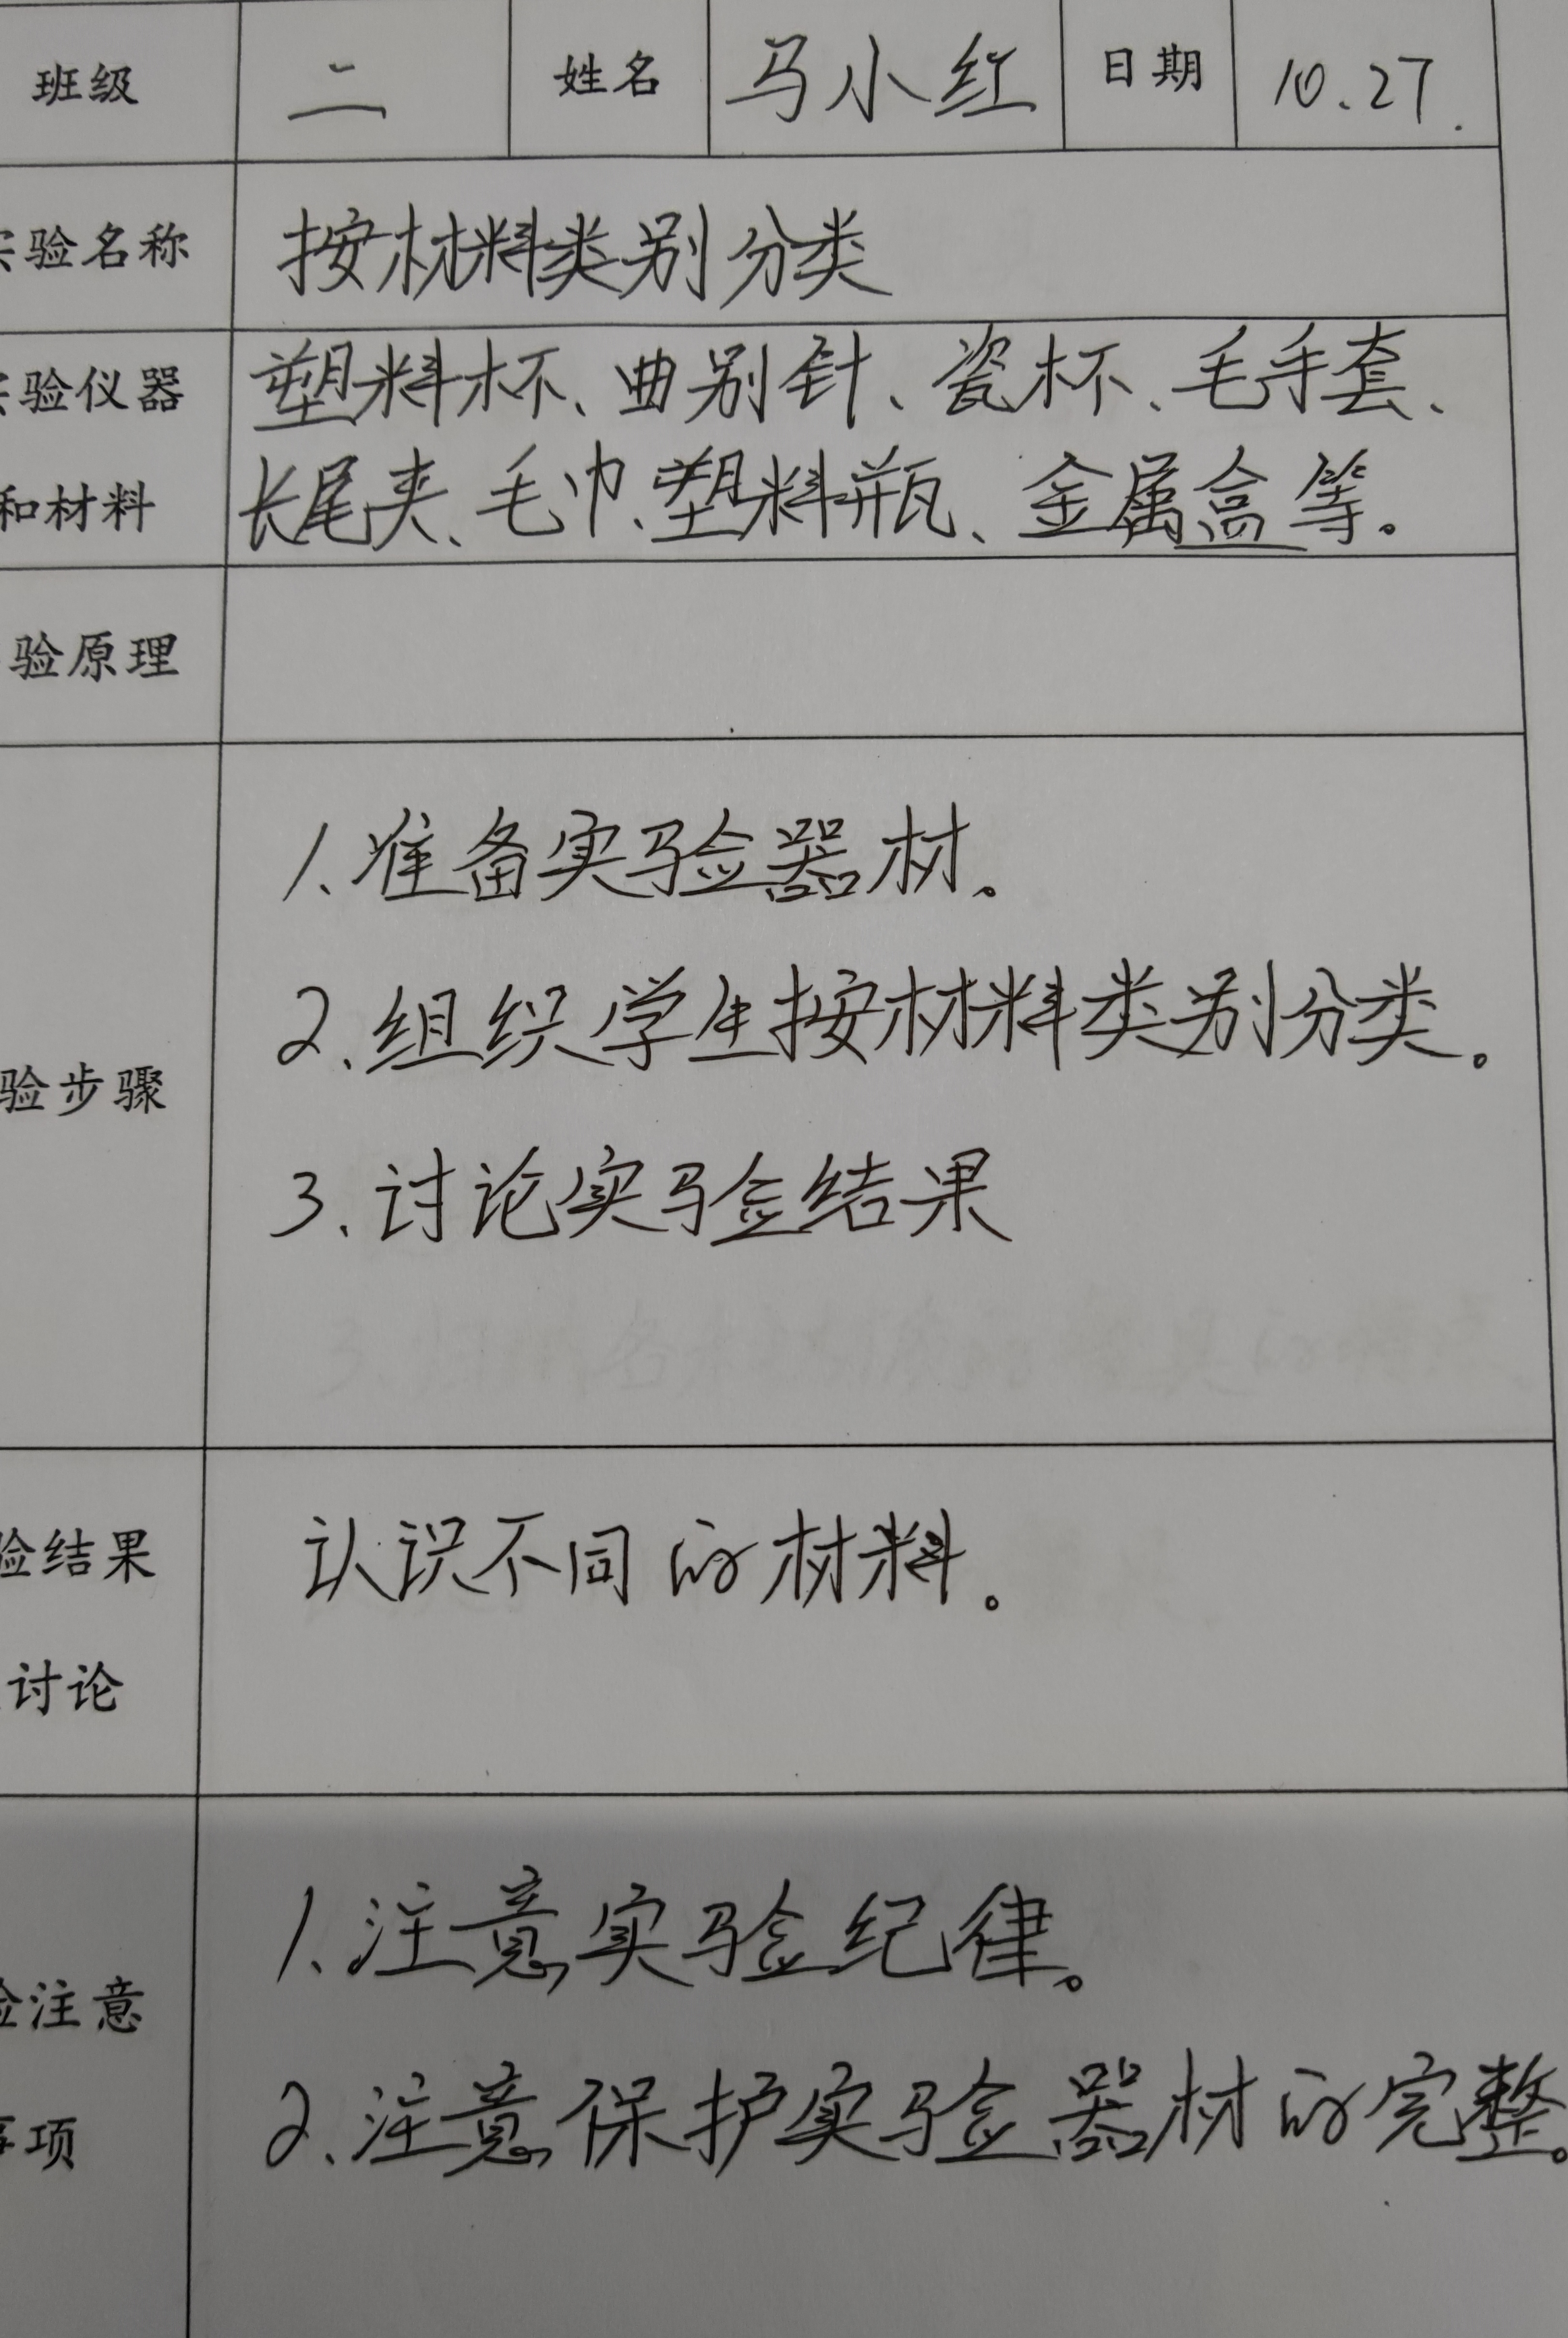 班级 二 姓名 马小红 日期 10.27.
实验名称 按材料类别分类
实验仪器 塑料杯、曲别针、瓷杯、毛手套、
和材料 长尾夹、毛巾、塑料瓶、金属盒等。
验原理
1、准备实验器材。
2、组织学生按材料类别分类。
验步骤
3、讨论实验结果
验结果 认识不同的材料。
讨论
1、注意实验纪律。
验注意
2、注意保护实验器材的完整。
事项